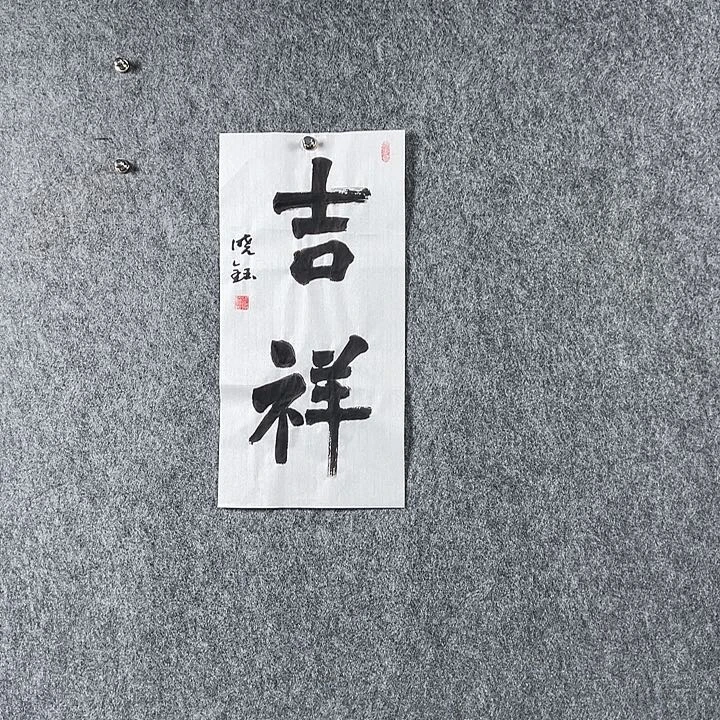 吉祥
晓钰